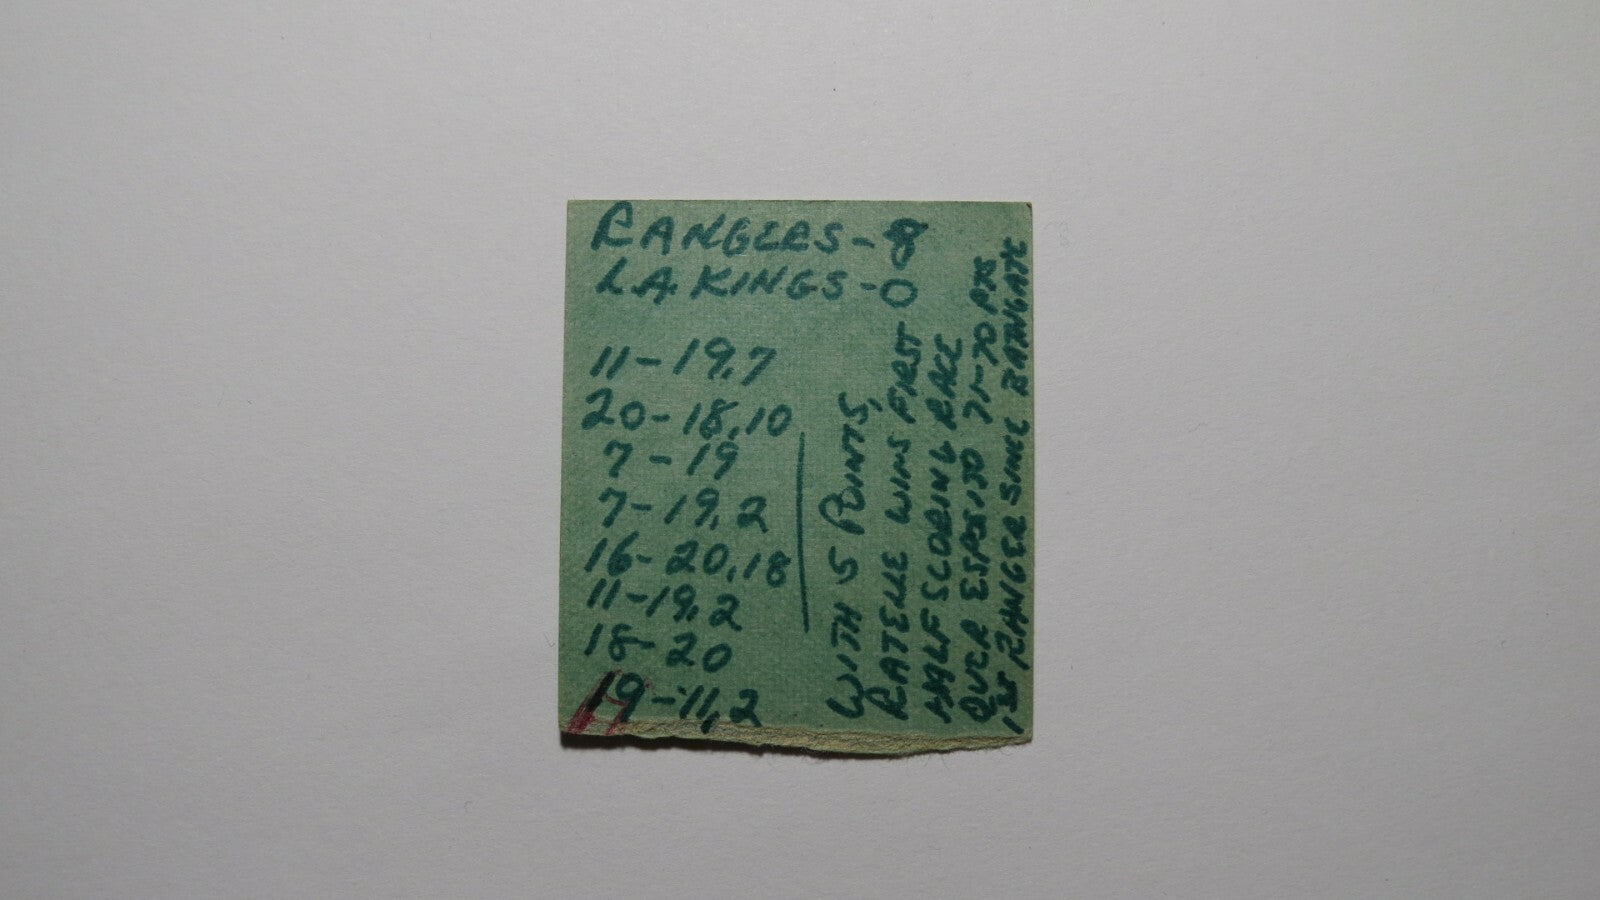 RANGERS-8
L.A. KINGS-0
11-19,7
20-18,10
7-19
7-19,2
16-20,18
11-19,2
18-20
19-11,2
WITH 5 POINTS,
RATELLE WINS FIRST
HALF SCORING RACE
OVER ESPOSITO 71-70 PTS
1ST RANGER SINCE BATHGATE